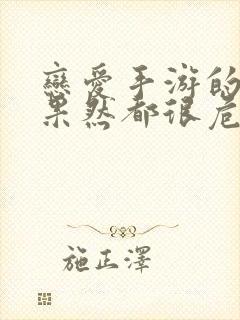 戀愛手游的
果然都很危
施正澤